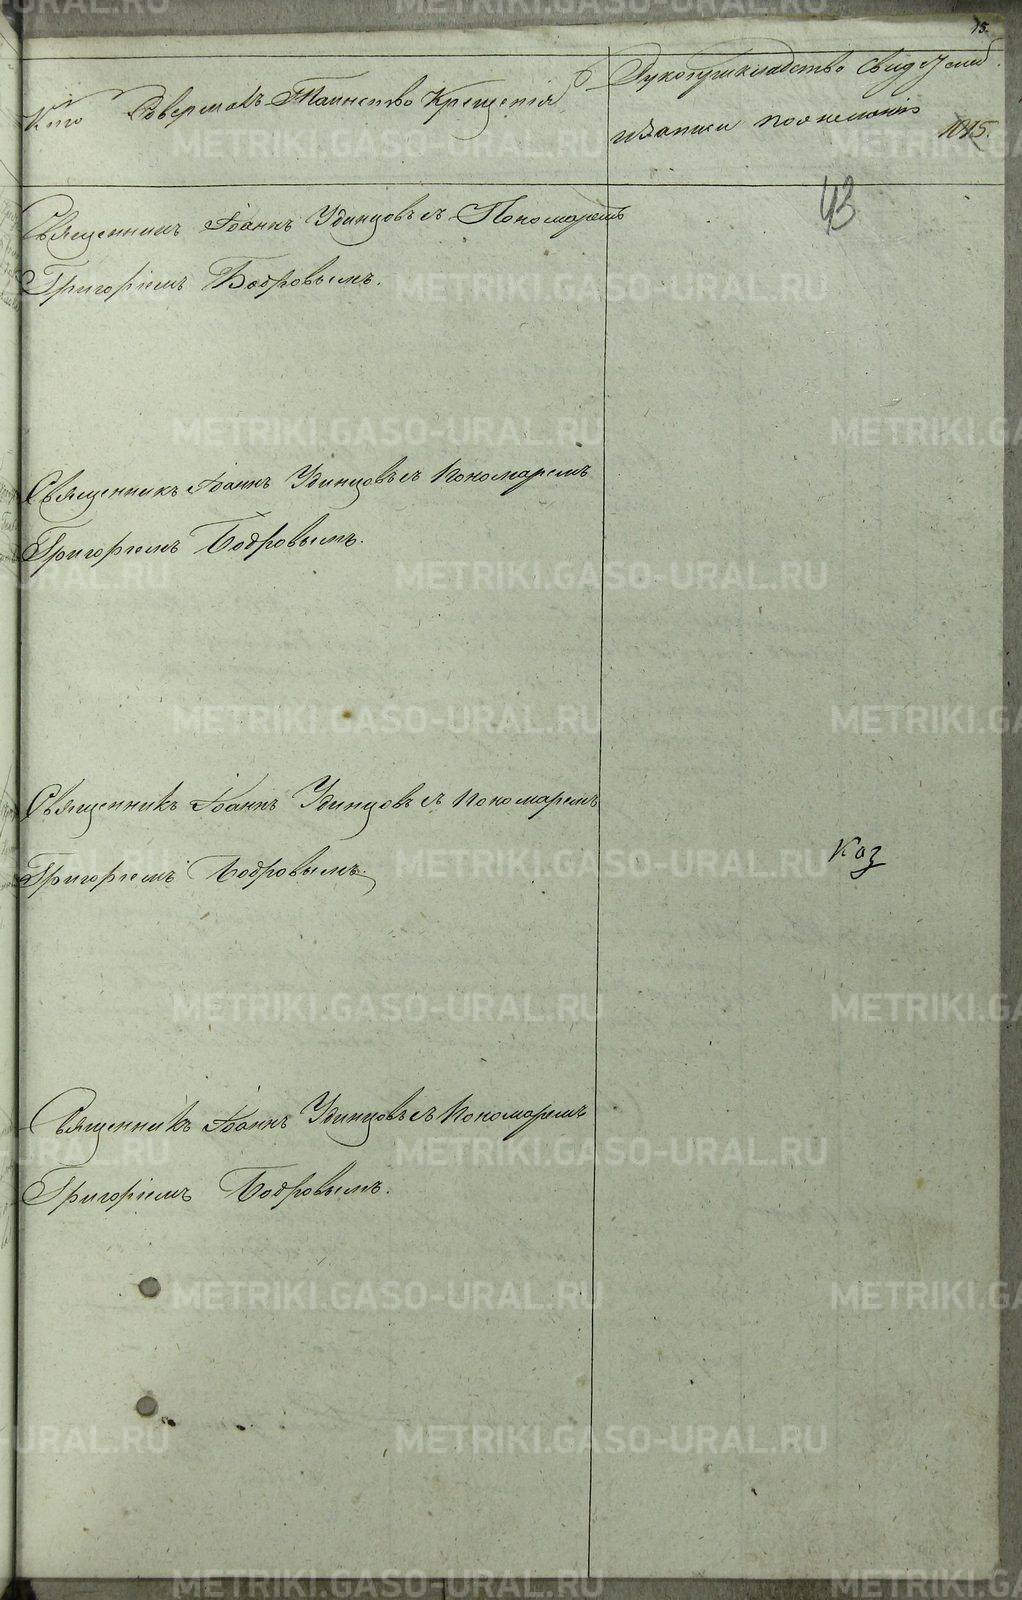 15.
Кто Совершалъ Таинство Крещенія
Рукоприкладство Свидѣтелей
записи по желанію
1015.
43
Священникъ Іоаннъ Удинцовъ съ Пономаремъ
Григоріемъ Бодровымъ.
Священникъ Іоаннъ Удинцовъ съ Пономаремъ
Григоріемъ Бодровымъ.
Священникъ Іоаннъ Удинцовъ съ Пономаремъ
Григоріемъ Бодровымъ.
Коз
Священникъ Іоаннъ Удинцовъ съ Пономаремъ
Григоріемъ Бодровымъ.
METRIKI.GASO-URAL.RU